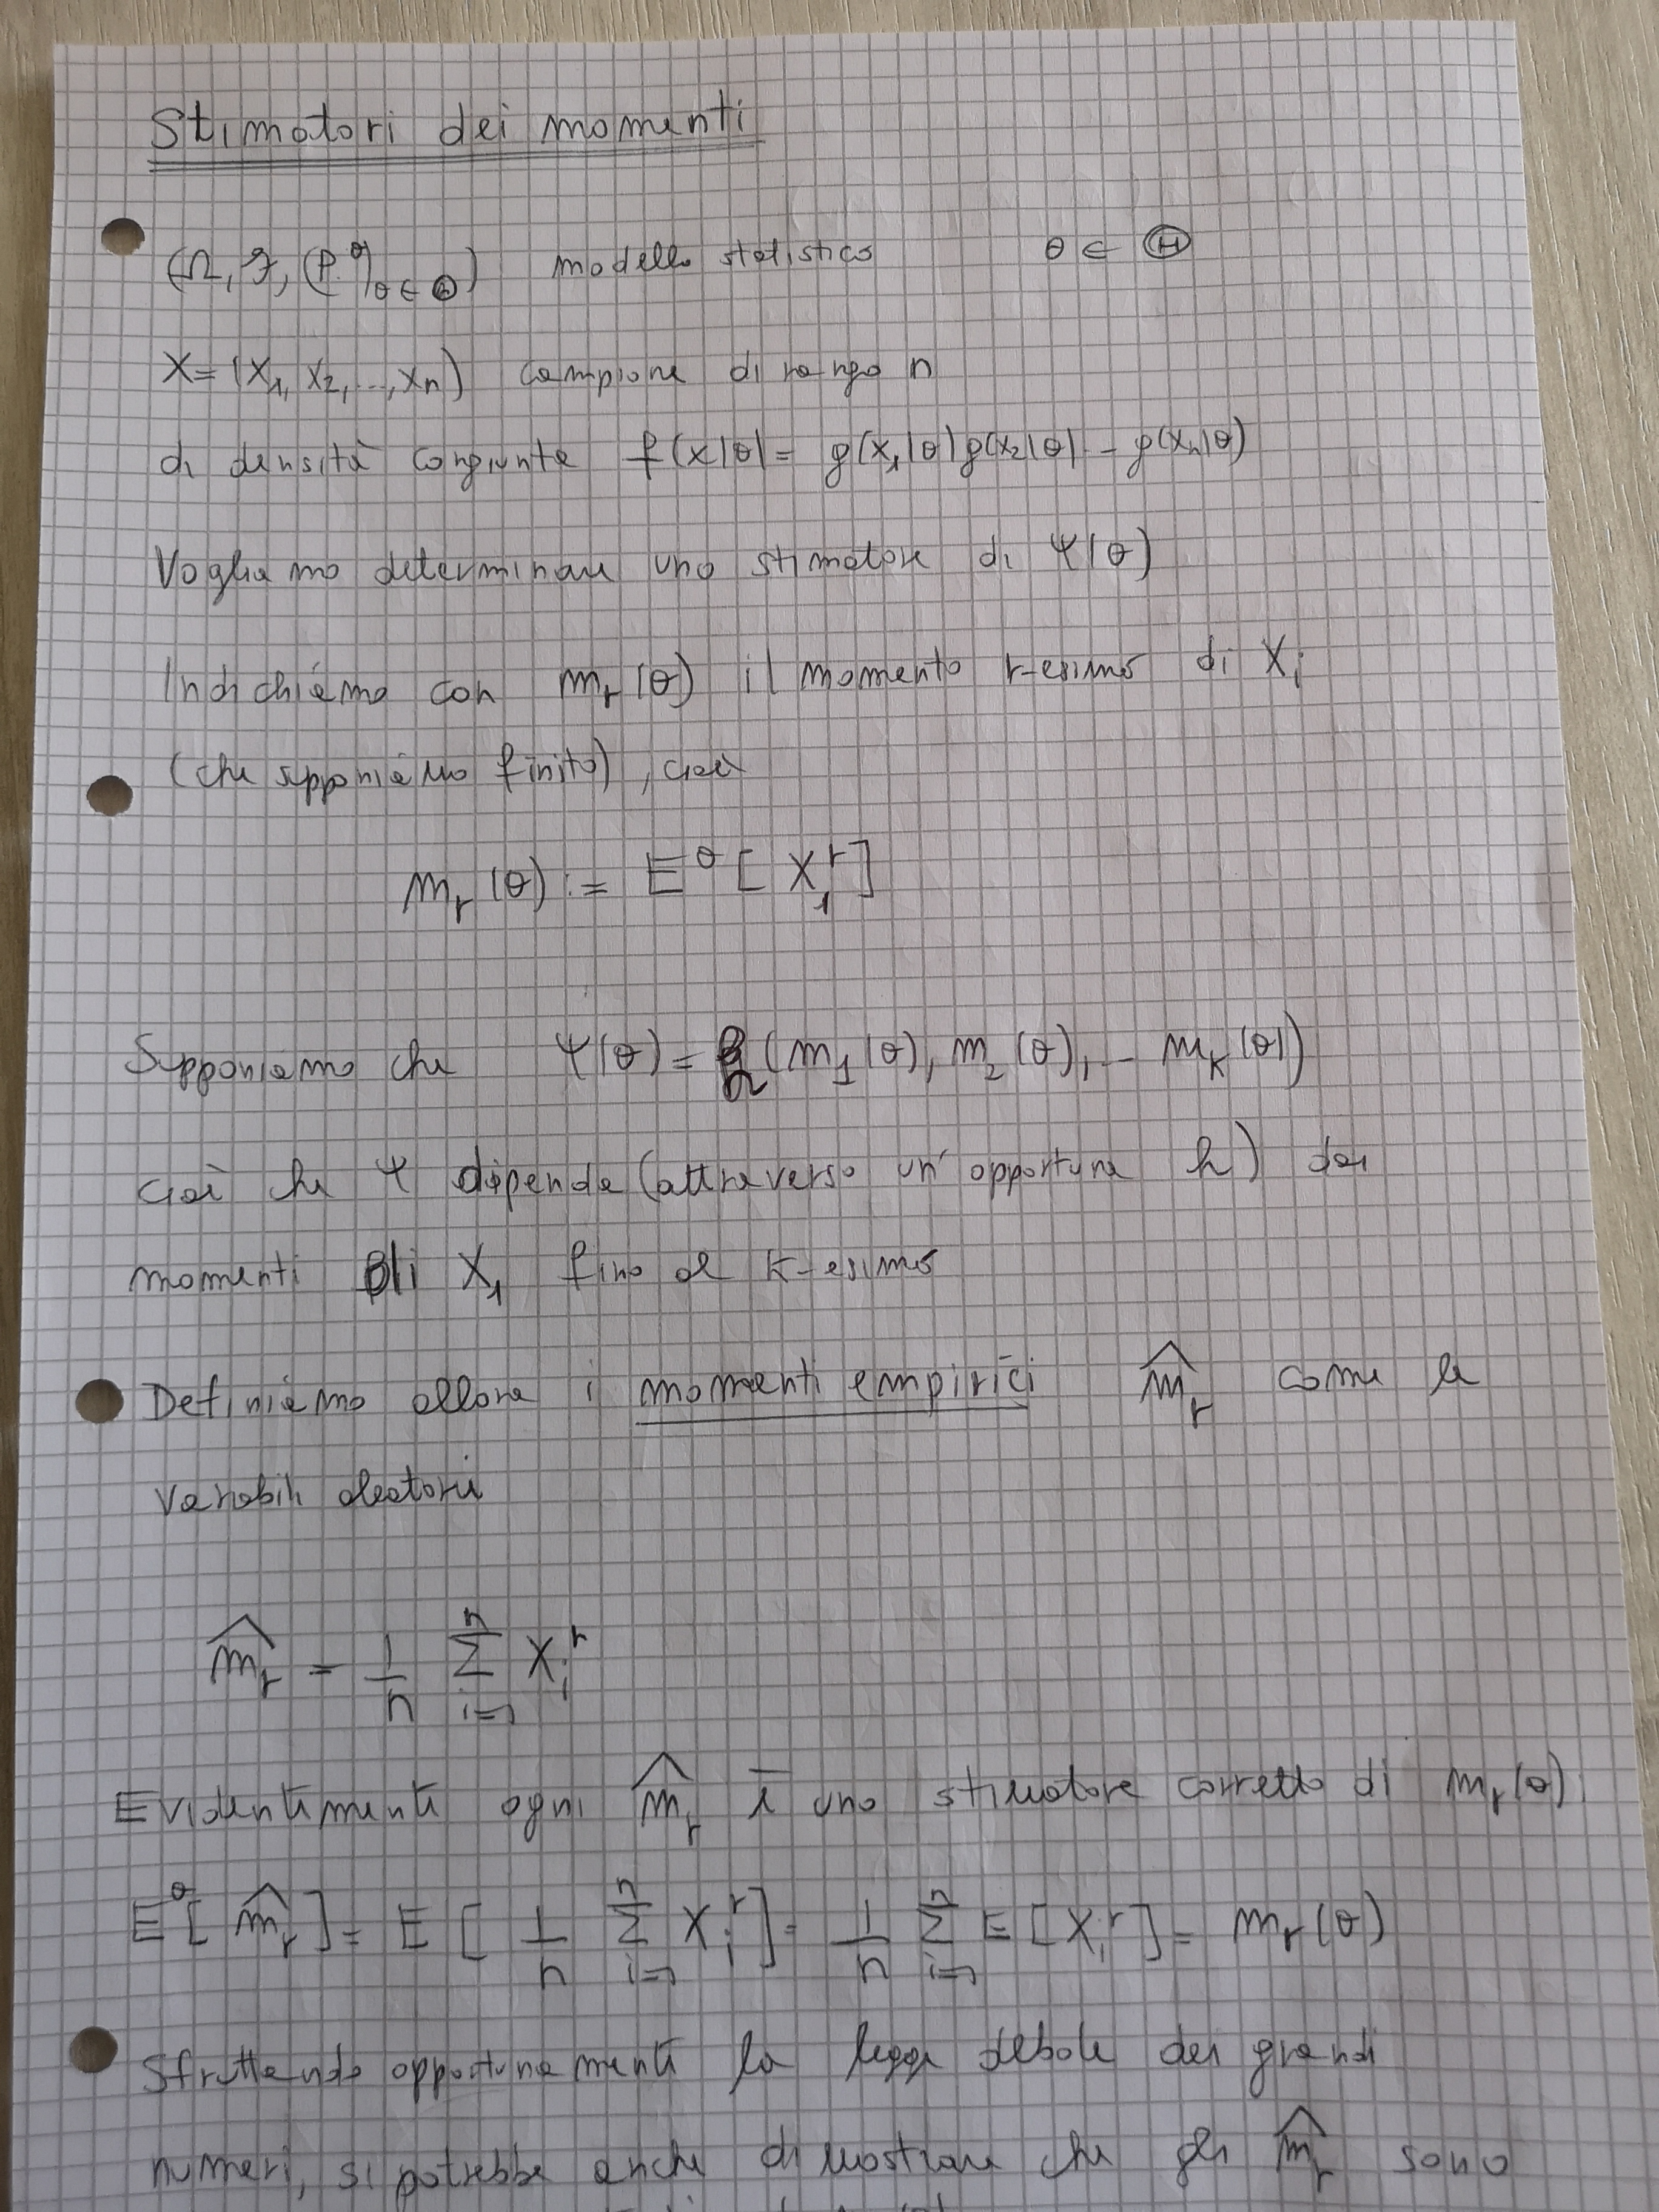 Stimatori dei momenti
(Ω, F, (P^θ)_{θ ∈ Θ}) modello statistico θ ∈ Θ
X = (X_1, X_2, ..., X_n) campione di rango n
di densità congiunta f(x|θ) = g(x_1|θ) g(x_2|θ) ... g(x_n|θ)
Vogliamo determinare uno stimatore di ψ(θ)
Indichiamo con m_r(θ) il momento r-esimo di X_i
(che supponiamo finito), cioè
m_r(θ) := E^θ[X_1^r]
Supponiamo che ψ(θ) = h(m_1(θ), m_2(θ), ... m_k(θ))
cioè che ψ dipenda (attraverso un' opportuna h) dai
momenti di X_1 fino al k-esimo
Definiamo allora i momenti empirici \hat{m}_r come le
variabili aleatorie
\hat{m}_r = 1/n Σ_{i=1}^n X_i^r
Evidentemente ogni \hat{m}_r è uno stimatore corretto di m_r(θ)
E^θ[\hat{m}_r] = E[1/n Σ_{i=1}^n X_i^r] = 1/n Σ_{i=1}^n E[X_i^r] = m_r(θ)
Sfruttando opportunamente la legge debole dei grandi
numeri, si potrebbe anche dimostrare che gli \hat{m}_r sono